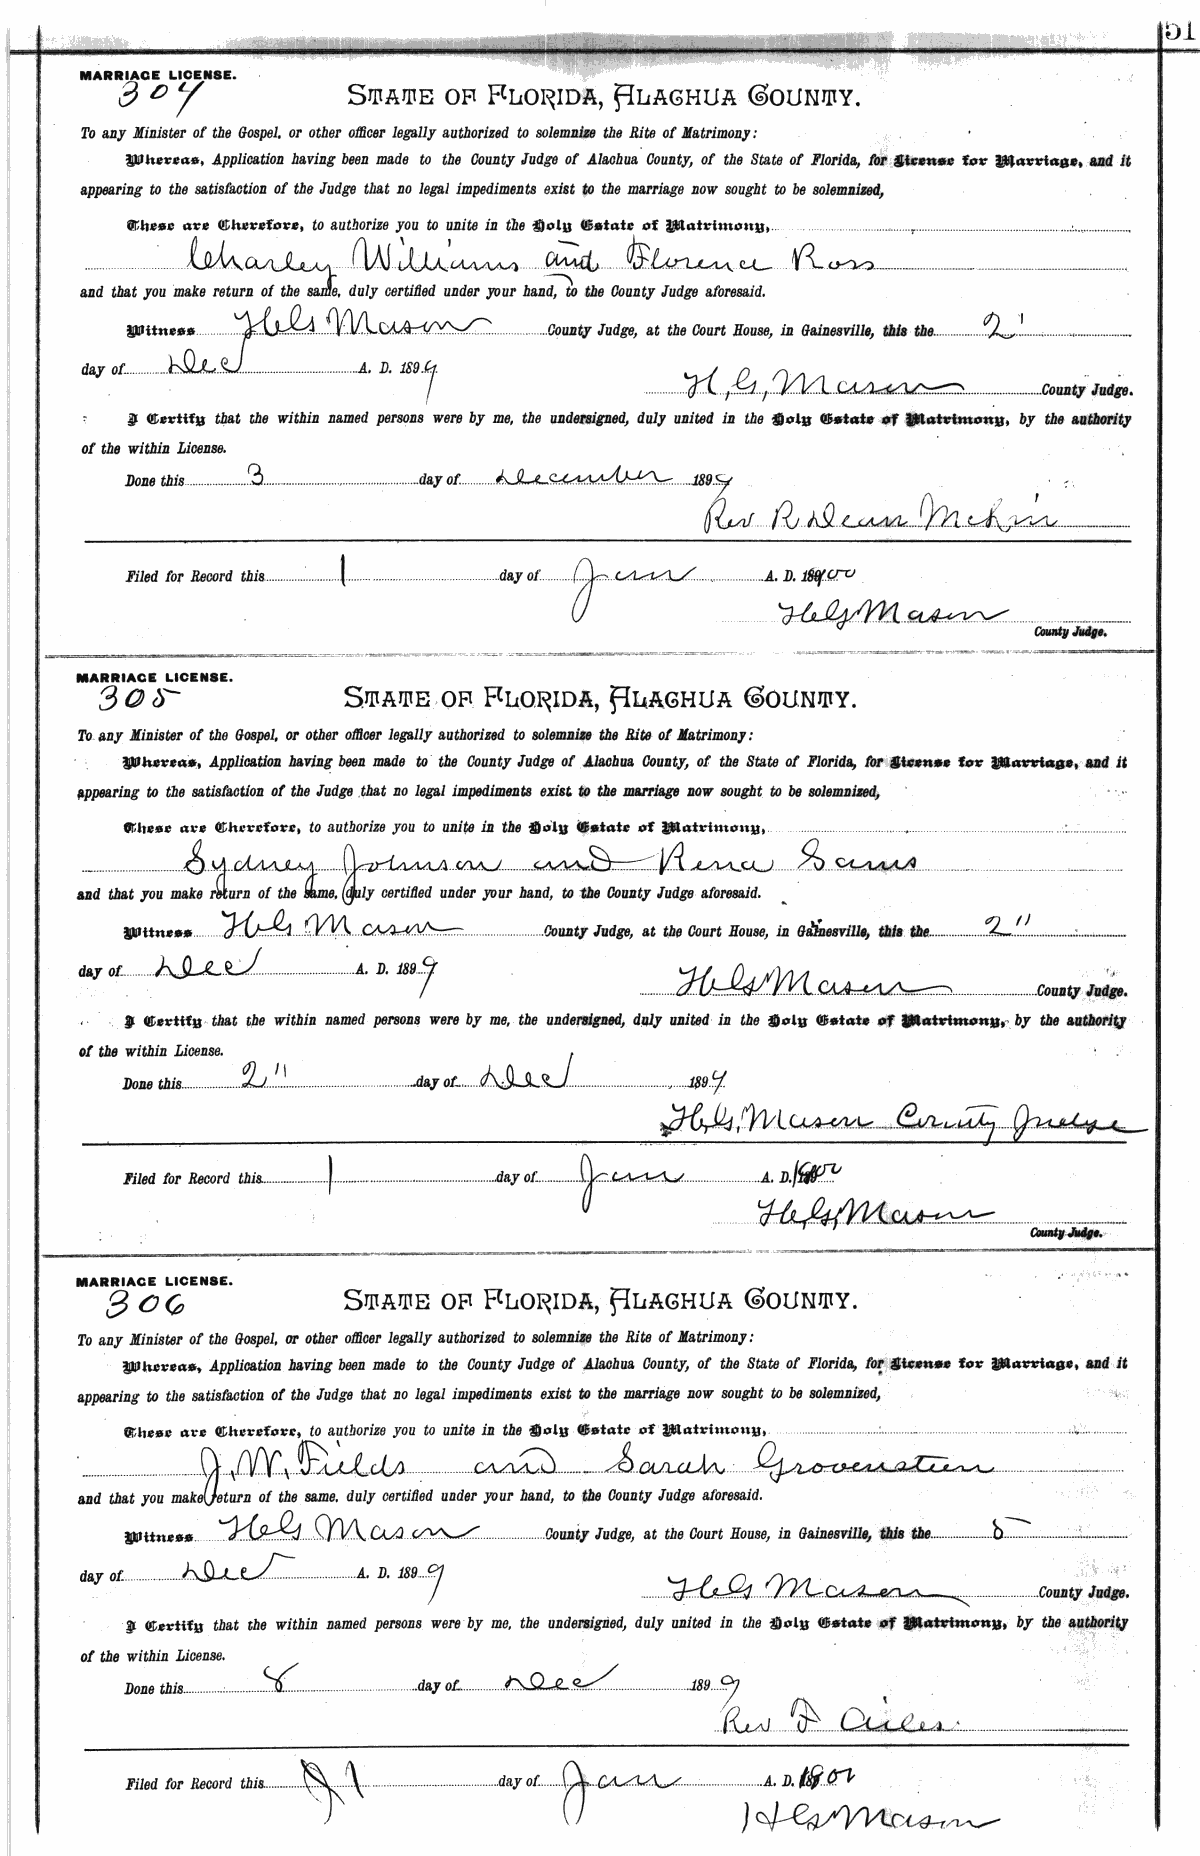 51
MARRIAGE LICENSE.
304
STATE OF FLORIDA, ALACHUA COUNTY.
To any Minister of the Gospel, or other officer legally authorized to solemnize the Rite of Matrimony:
Whereas, Application having been made to the County Judge of Alachua County, of the State of Florida, for License for Marriage, and it
appearing to the satisfaction of the Judge that no legal impediments exist to the marriage now sought to be solemnized,
These are Therefore, to authorize you to unite in the Holy Estate of Matrimony,
Charley Williams and Florence Ross
and that you make return of the same, duly certified under your hand, to the County Judge aforesaid.
Witness H G Mason County Judge, at the Court House, in Gainesville, this the 2"
day of Dec A. D. 1899
H, G, Mason County Judge.
I Certify that the within named persons were by me, the undersigned, duly united in the Holy Estate of Matrimony, by the authority
of the within License.
Done this 3 day of December 1899
Rev R Dean
Filed for Record this 1 day of Jan A. D. 1900
H G Mason
County Judge.
MARRIAGE LICENSE.
305
STATE OF FLORIDA, ALACHUA COUNTY.
To any Minister of the Gospel, or other officer legally authorized to solemnize the Rite of Matrimony:
Whereas, Application having been made to the County Judge of Alachua County, of the State of Florida, for License for Marriage, and it
appearing to the satisfaction of the Judge that no legal impediments exist to the marriage now sought to be solemnized,
These are Therefore, to authorize you to unite in the Holy Estate of Matrimony,
Sydney Johnson and Rena Sams
and that you make return of the same, duly certified under your hand, to the County Judge aforesaid.
Witness H G Mason County Judge, at the Court House, in Gainesville, this the 2"
day of Dec A. D. 1899
H G Mason County Judge.
I Certify that the within named persons were by me, the undersigned, duly united in the Holy Estate of Matrimony, by the authority
of the within License.
Done this 2" day of Dec 1899
H, G, Mason County Judge
Filed for Record this 1 day of Jan A. D. 1900
H, G, Mason
County Judge.
MARRIAGE LICENSE.
306
STATE OF FLORIDA, ALACHUA COUNTY.
To any Minister of the Gospel, or other officer legally authorized to solemnize the Rite of Matrimony:
Whereas, Application having been made to the County Judge of Alachua County, of the State of Florida, for License for Marriage, and it
appearing to the satisfaction of the Judge that no legal impediments exist to the marriage now sought to be solemnized,
These are Therefore, to authorize you to unite in the Holy Estate of Matrimony,
J, W, Fields and Sarah Grovenstien
and that you make return of the same, duly certified under your hand, to the County Judge aforesaid.
Witness H G Mason County Judge, at the Court House, in Gainesville, this the 5
day of Dec A. D. 1899
H G Mason County Judge.
I Certify that the within named persons were by me, the undersigned, duly united in the Holy Estate of Matrimony, by the authority
of the within License.
Done this 8 day of Dec 1899
Rev F Ailes
Filed for Record this 1 day of Jan A. D. 1900
H G Mason